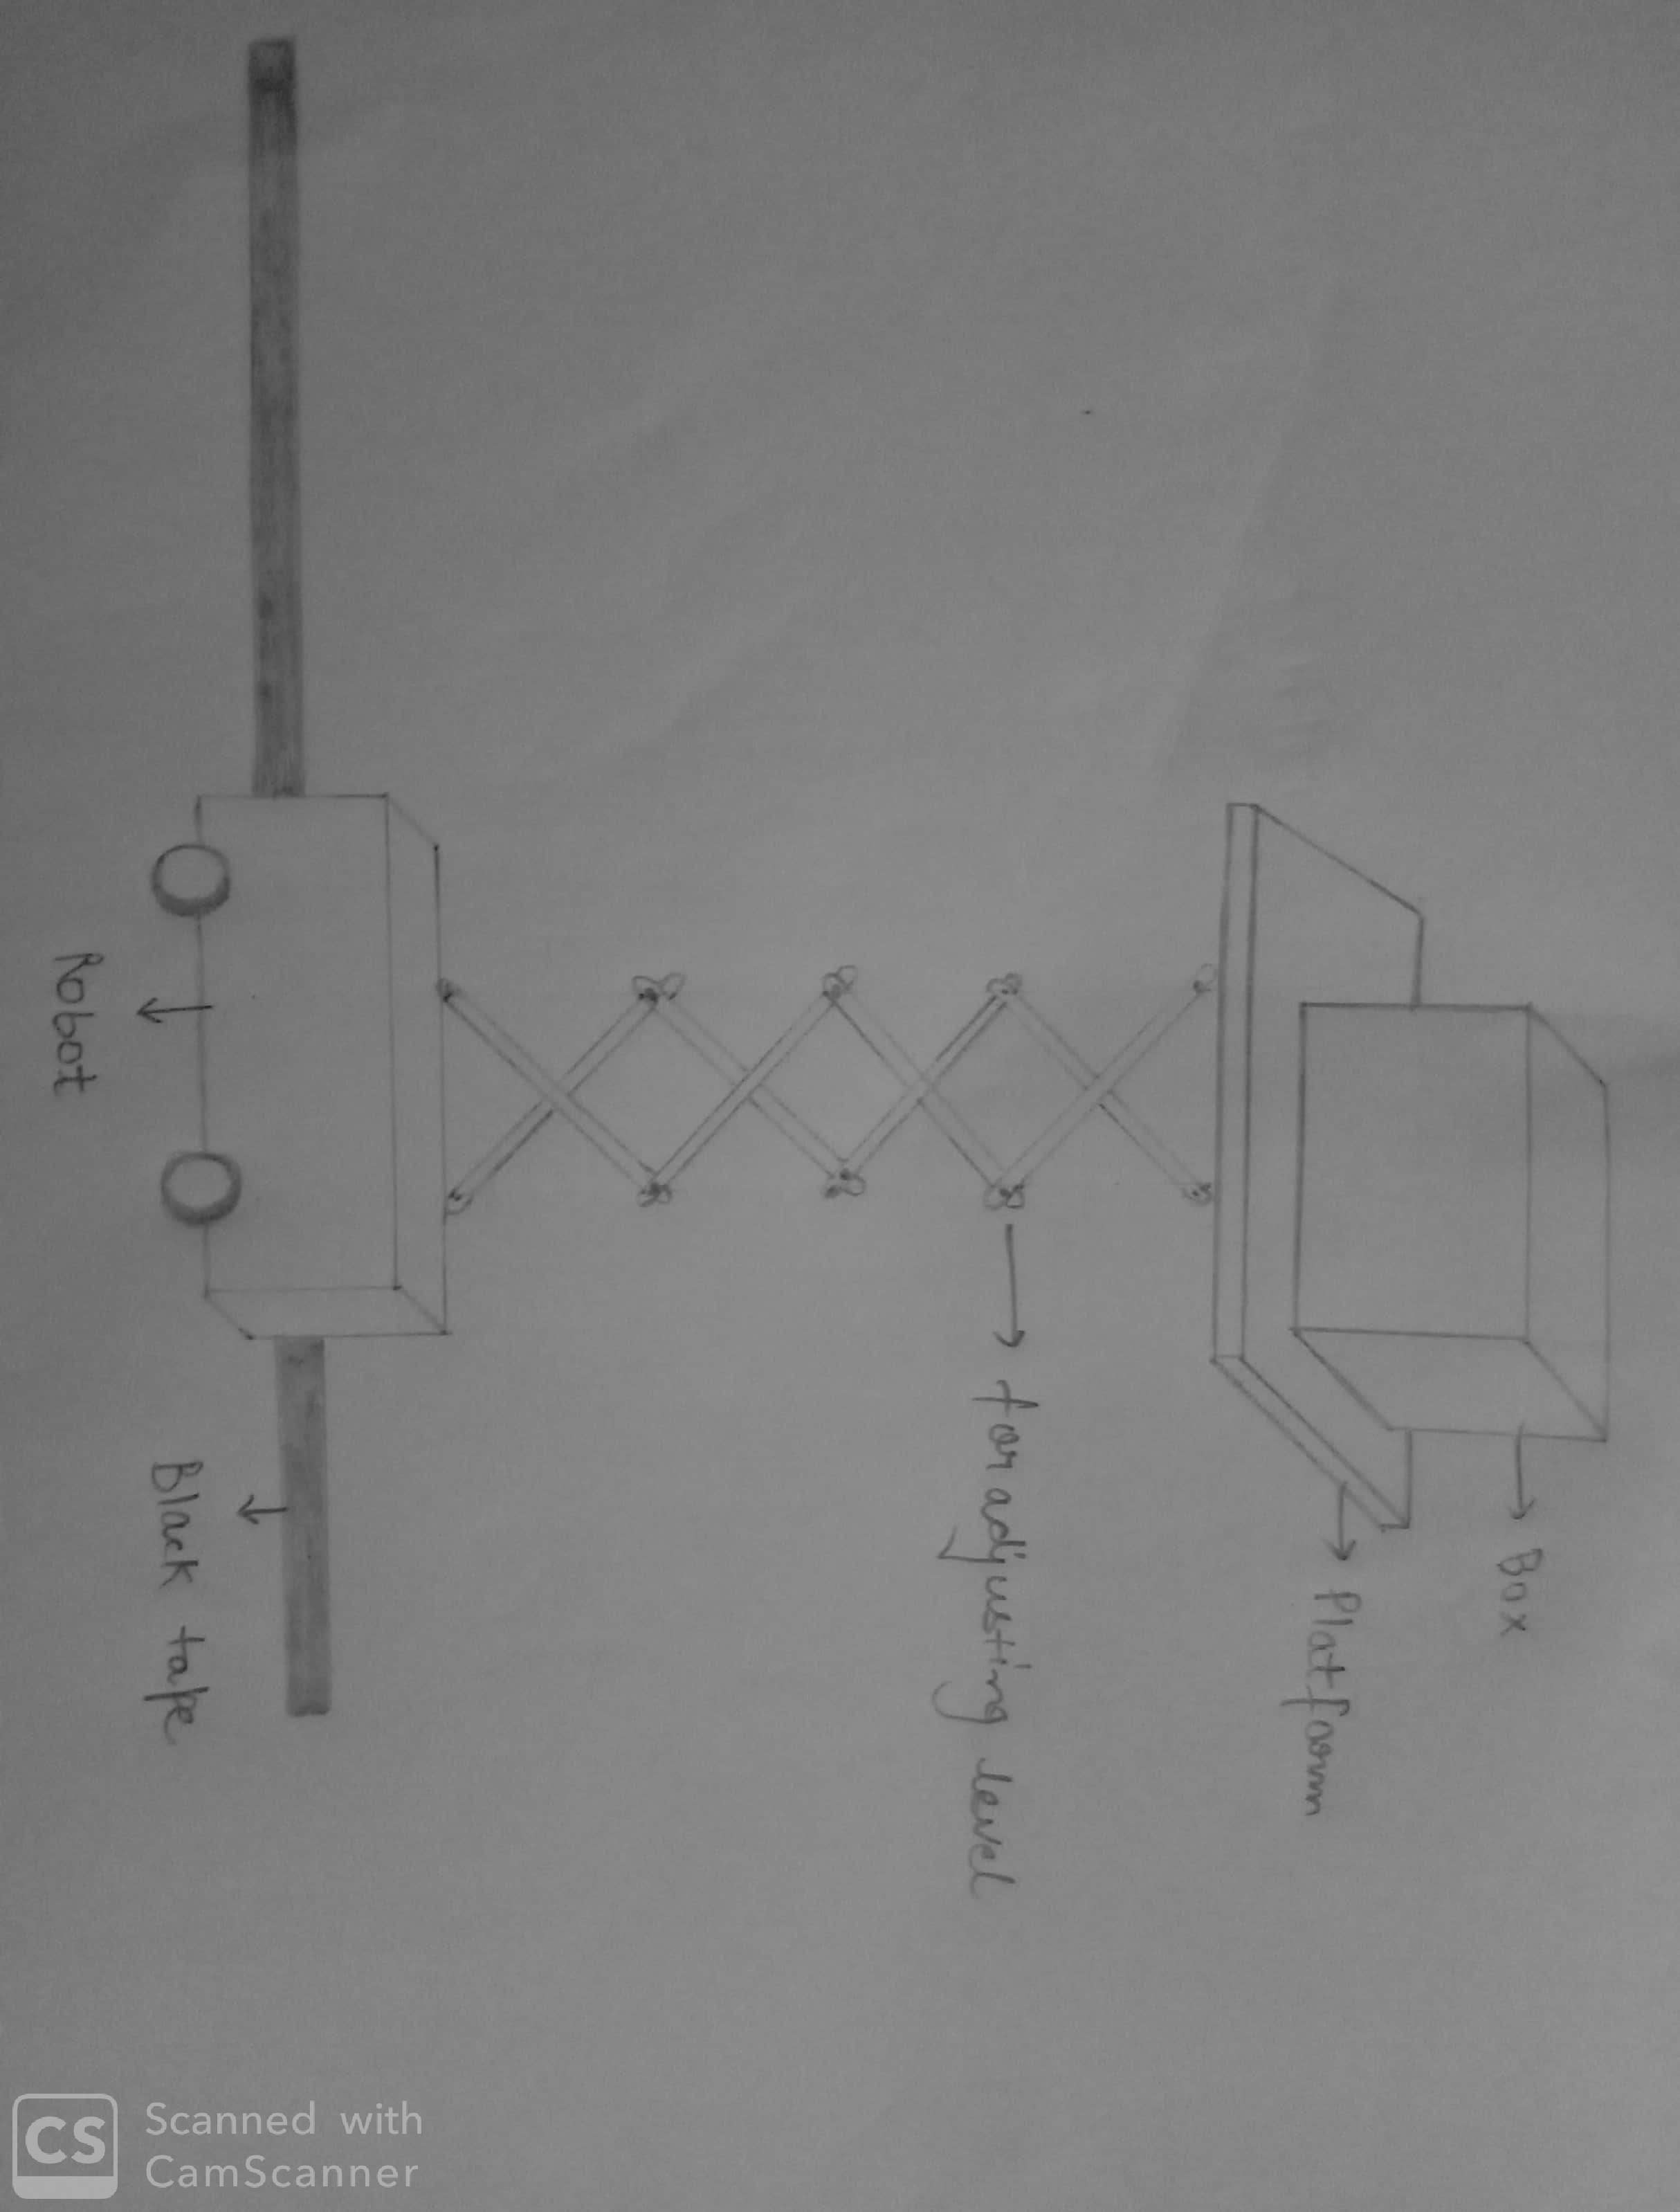 Box
Platform
for adjusting level
Robot
Black tape
CS
Scanned with
CamScanner